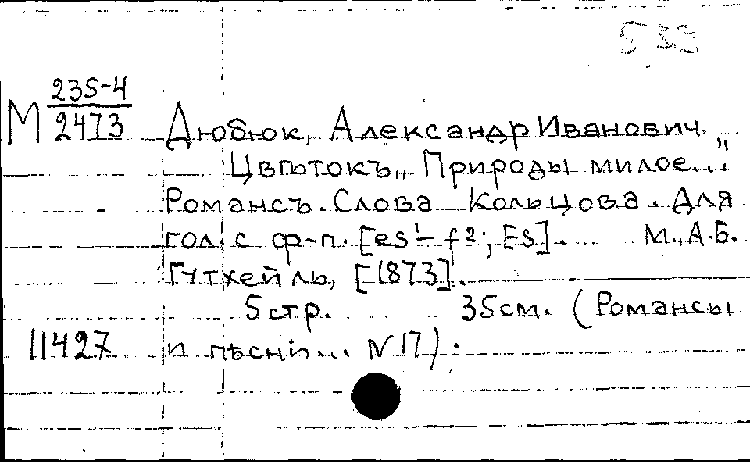 5 33
М 235-4
2473 Дюбюк, Александр Иванович.
Цвѣтокъ „Природы милое..."
Романсъ. Слова Кольцова. Для
гол. с ф-п. [es¹-f²; Es]. М., А.Б.
Гутхейль, [1873].
5 стр. 35см. (Романсы
11427 и пѣсни... N 17).